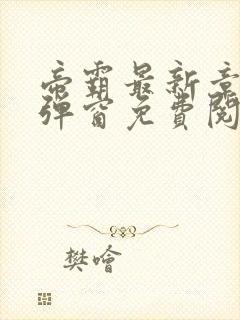 帝霸最新章
彈窗免費閱
樊噲